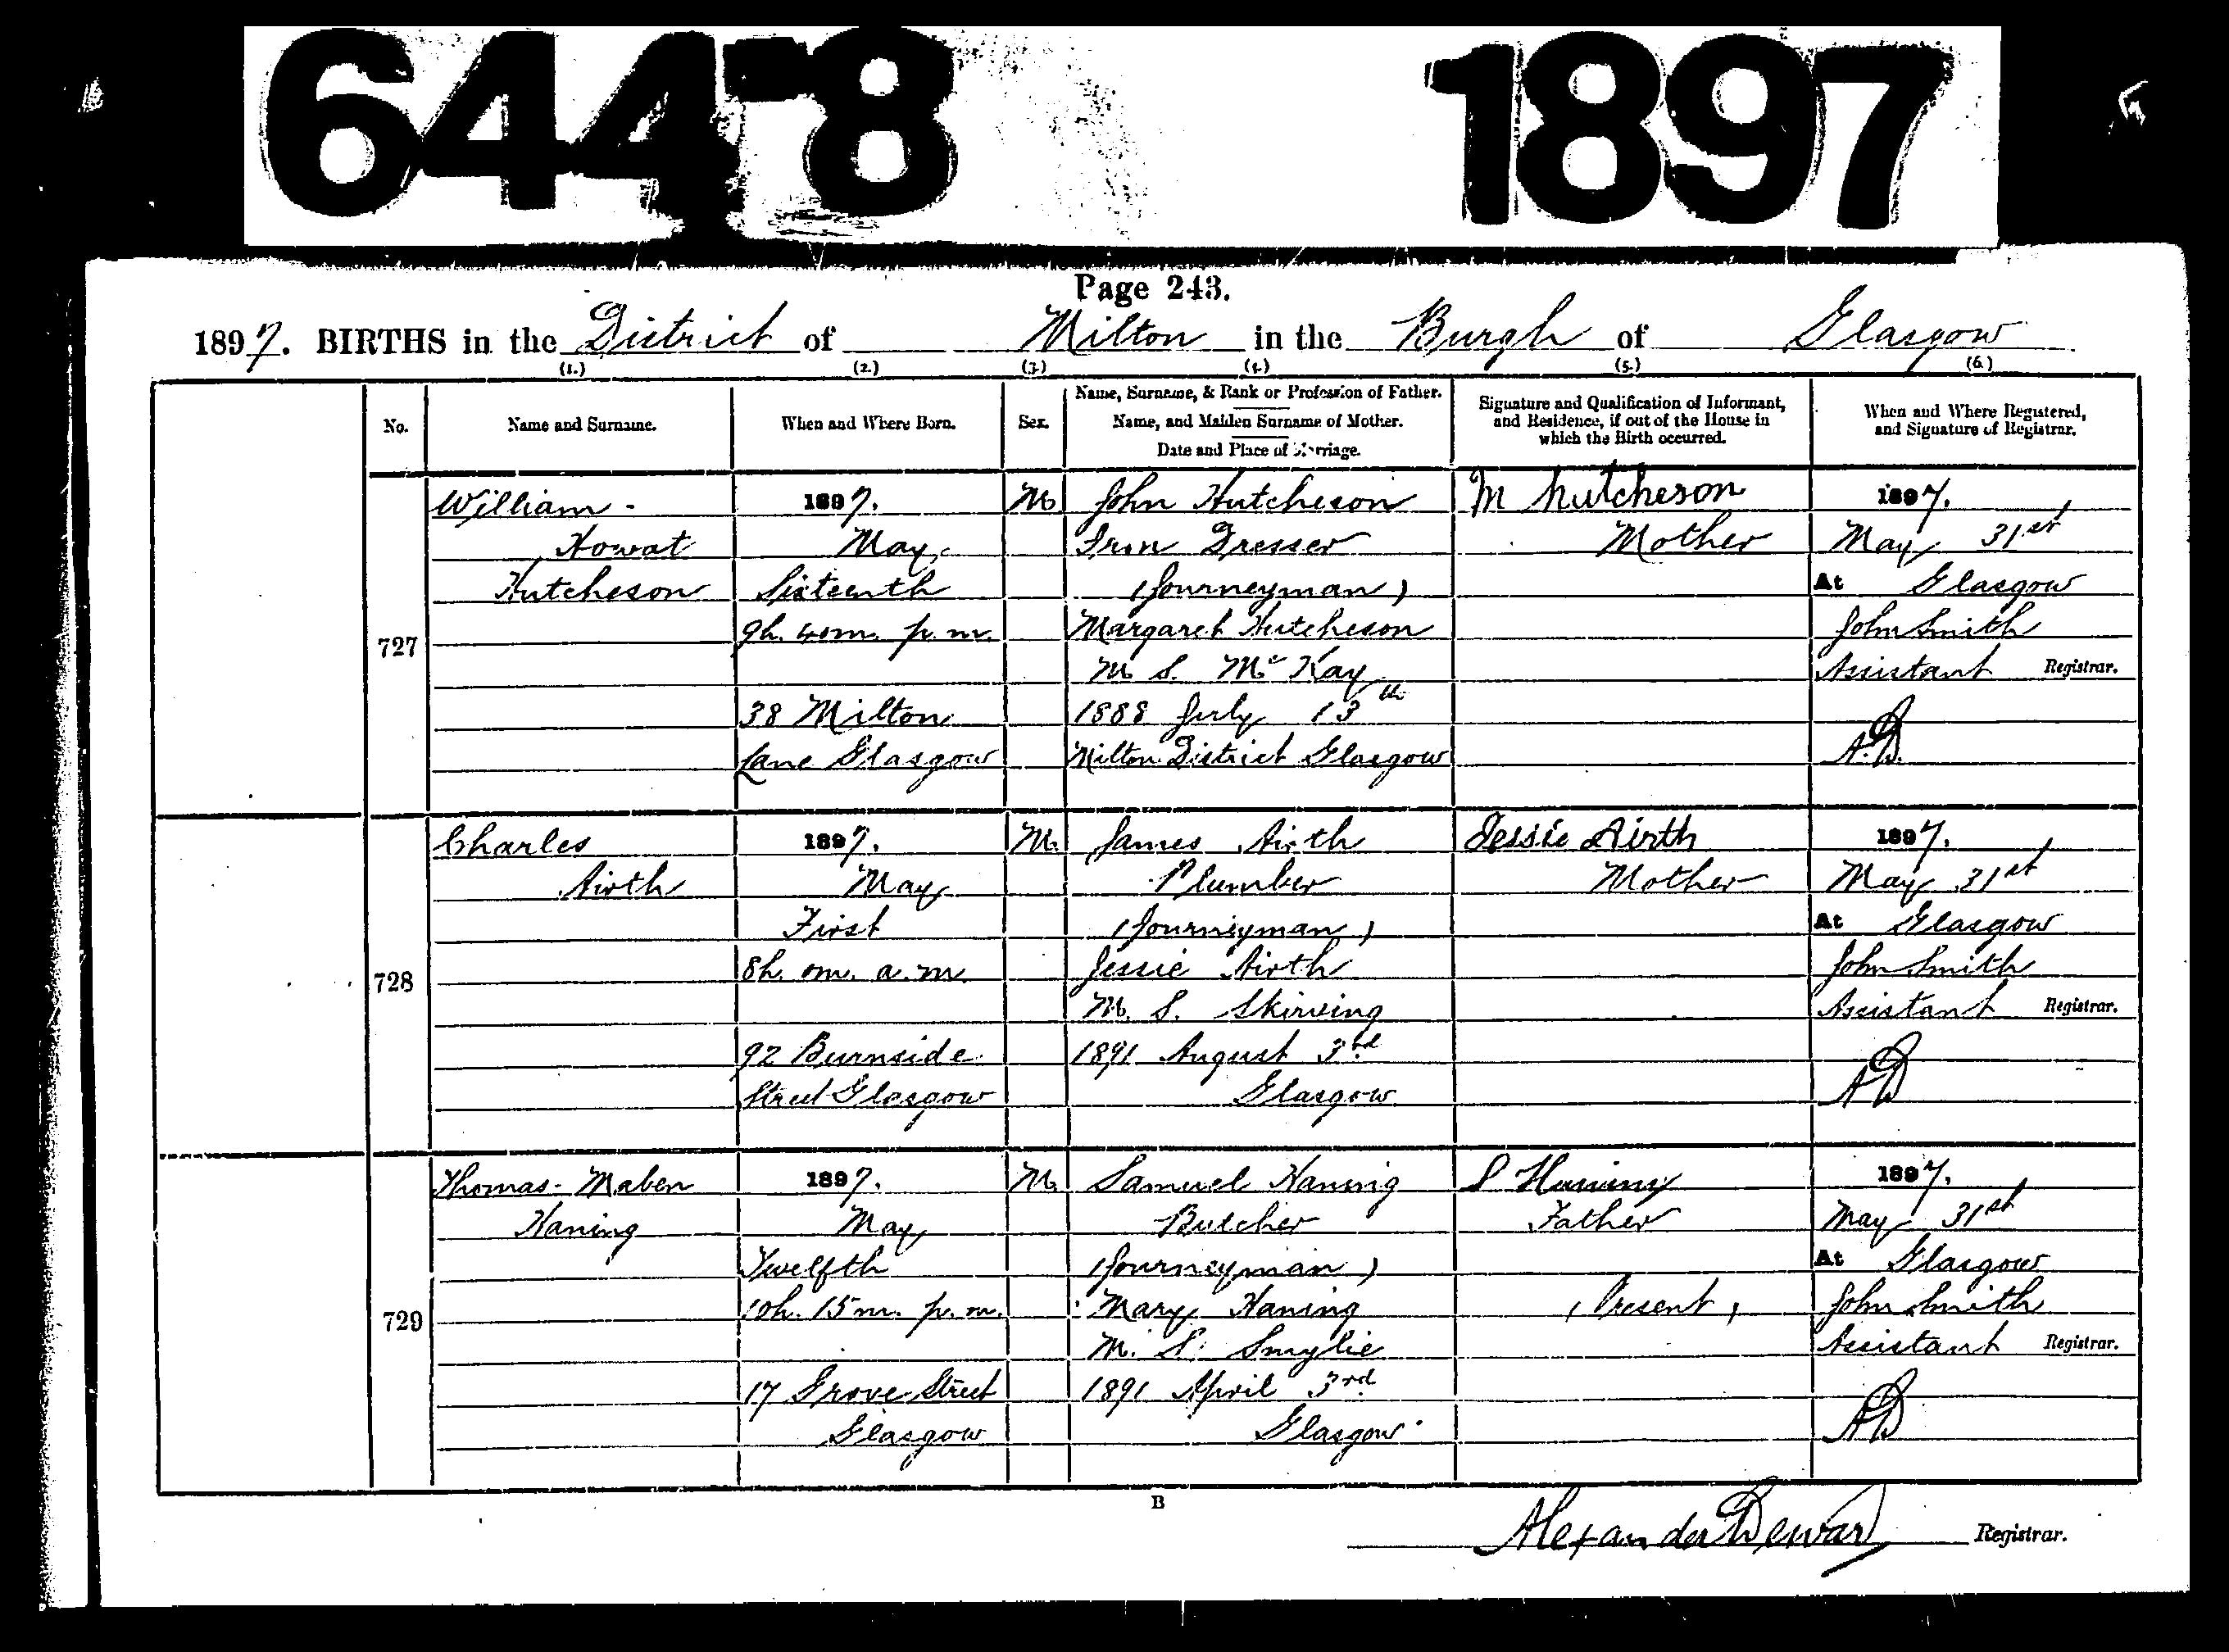 644-8 1897
Page 243.
1897. BIRTHS in the District of Milton in the Burgh of Glasgow
(1.) (2.) (3.) (4.) (5.) (6.)
No.
Name and Surname.
When and Where Born.
Sex.
Name, Surname, & Rank or Profession of Father.
Name, and Maiden Surname of Mother.
Date and Place of Marriage.
Signature and Qualification of Informant,
and Residence, if out of the House in
which the Birth occurred.
When and Where Registered,
and Signature of Registrar.
727
William
Howat
Hutcheson
1897.
May
Sixteenth
9h. 40m. p.m.
38 Milton
Lane Glasgow
M
John Hutcheson
Iron Dresser
(Journeyman)
Margaret Hutcheson
M. S. McKay
1888 July 13th
Milton District Glasgow
M Hutcheson
Mother
1897.
May 31st
At Glasgow
John Smith
Assistant Registrar.
A.D.
728
Charles
Airth
1897.
May
First
8h. 0m. a.m.
92 Burnside
Street Glasgow
M.
James Airth
Plumber
(Journeyman)
Jessie Airth
M. S. Skirving
1891 August 3rd
Glasgow
Jessie Airth
Mother
1897.
May 31st
At Glasgow
John Smith
Assistant Registrar.
AD
729
Thomas Maben
Haning
1897.
May
Twelfth
10h. 15m. p.m.
17 Grove Street
Glasgow
M.
Samuel Haning
Butcher
(Journeyman)
Mary Haning
M. S. Smylie
1891 April 3rd
Glasgow
S Haning
Father
(Present)
1897.
May 31st
At Glasgow
John Smith
Assistant Registrar.
AD
B
Alexander Dewar Registrar.